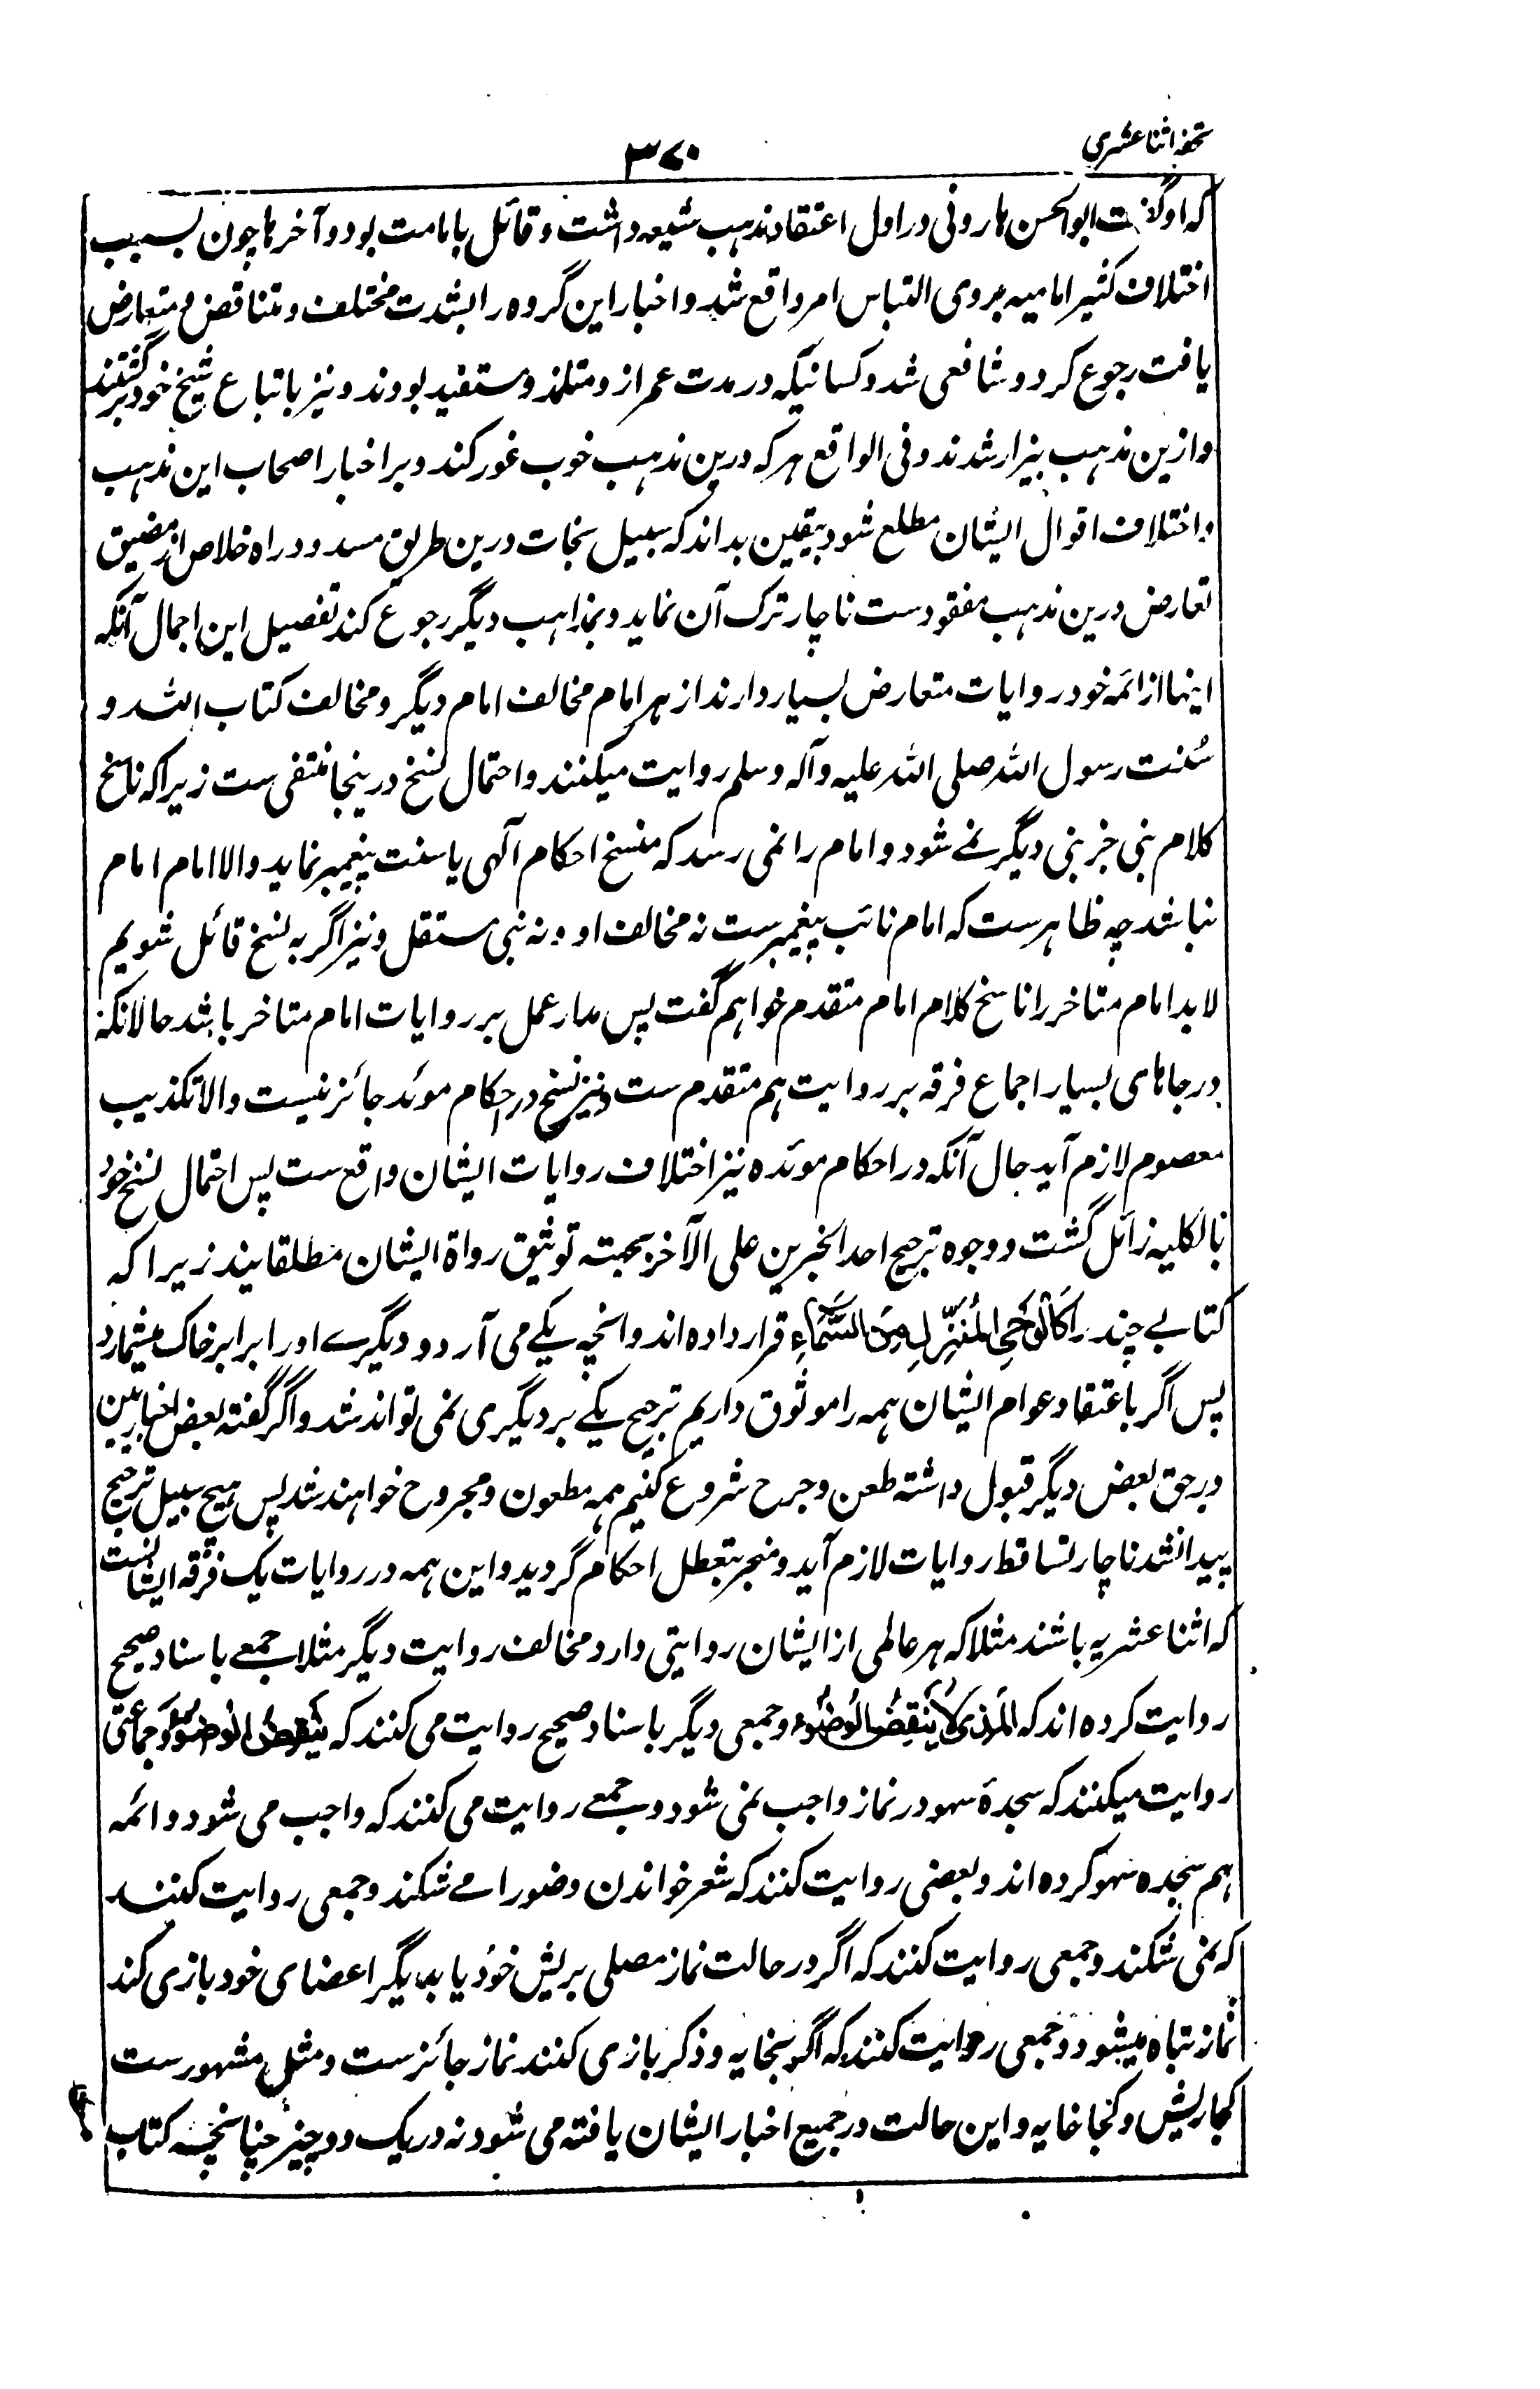 تحفه اثنا عشری
۳۷۰
که او گفت ابوالحسن هارونی در اول اعتقاد مذهب شیعه داشت و قائل بامامت بود و آخرها چون بسبب
اختلاف کثیر امامیه بروی التباس امر واقع شد و اخبار این گروه را بشدت مختلف و متناقض و متعارض
یافت رجوع کرد و شافعی شد و کسانیکه در مدت عمر ازو متلمذ و مستفید بودند و نیز باتباع شیخ خود برگشتند
و ازین مذهب بیزار شدند و فی الواقع هر که درین مذهب خوب غور کند و بر اخبار اصحاب این مذهب
و اختلاف اقوال ایشان مطلع شود بیقین بداند که سبیل نجات درین طریق مسدود و راه خلاص از مضیق
تعارض درین مذهب مفقودست ناچار ترک آن نماید و بمذاهب دیگر رجوع کند تفصیل این اجمال آنکه
اینها از ائمه خود روایات متعارض بسیار دارند از هر امام مخالف امام دیگر و مخالف کتاب الله و
سُنت رسول الله صلی الله علیه و آله وسلم روایت میکنند و احتمال نسخ درینجا منتفی ست زیرا که ناسخ
کلام نبی جز نبی دیگر نمے شود و امام را نمی رسد که منسخ احکام آلهی یا سنت پیغمبر نماید و الا امام امام
نباشد چه ظاهرست که امام نائب پیغمبرست نه مخالف او و نه نبی مستقل و نیز اگر به نسخ قائل شویم
لابد امام متاخر را ناسخ کلام امام متقدم خواهم گفت پس مدار عمل بر روایات امام متاخر باشد حالانکه
در جاهای بسیار اجماع فرقه بر روایت هم متقدم ست و نیز نسخ در احکام موئد جائز نیست و الا تکذیب
معصوم لازم آید حال آنکه در احکام موئده نیز اختلاف روایات ایشان واقع ست پس احتمال نسخ خود
بالکلیه زائل گشت و وجوه ترجیح احد الخبرین علی الآخر بجهته توثیق رواة ایشان مطلقا بند زیرا که
کتابے چند را کَالْوَحْیِ المُنَزَّلِ مِنَ السَّمَاءِ قرار داده اند و آنچه یکے می آرد و دیگرے او را برابر خاک میشمارد
پس اگر باعتقاد عوام ایشان همه را موثوق داریم ترجیح یکے بر دیگری نمی تواند شد و اگر گفته بعض اخباریین
در حق بعض دیگر قبول داشته طعن و جرح شروع کنیم همه مطعون و مجروح خواهند شد پس هیچ سبیل ترجیح
پیدا نشد ناچار تساقط روایات لازم آید و منجر بتعطل احکام گردید و این همه در روایات یک فرقه ایشانست
که اثنا عشریه باشند مثلا که هر عالمی از ایشان روایتی دارد مخالف روایت دیگر مثلا جمعے باسناد صحیح
روایت کرده اند که المَذی لا یَنقِضُ الوُضُوء و جمعی دیگر باسناد صحیح روایت می کنند که ینقض الوضوء و جماعتی
روایت میکنند که سجدۀ سهو در نماز واجب نمی شود و جمعے روایت می کنند که واجب می شود و ائمه
هم سجده سهو کرده اند و بعضی روایت کنند که شعر خواندن وضو را مے شکند و جمعی روایت کنند
که نمی شکند و جمعی روایت کنند که اگر در حالت نماز مصلی بریش خود یا بدیگر اعضای خود بازی کند
نماز تباه میشود و جمعی روایت کنند که اگر بخایه و ذکر بازی کنند نماز جائزست و مثل مشهورست
کجا ریش و کجا خایه و این حالت در جمیع اخبار ایشان یافته می شود نه در یک دو چیز چنانچه کتاب